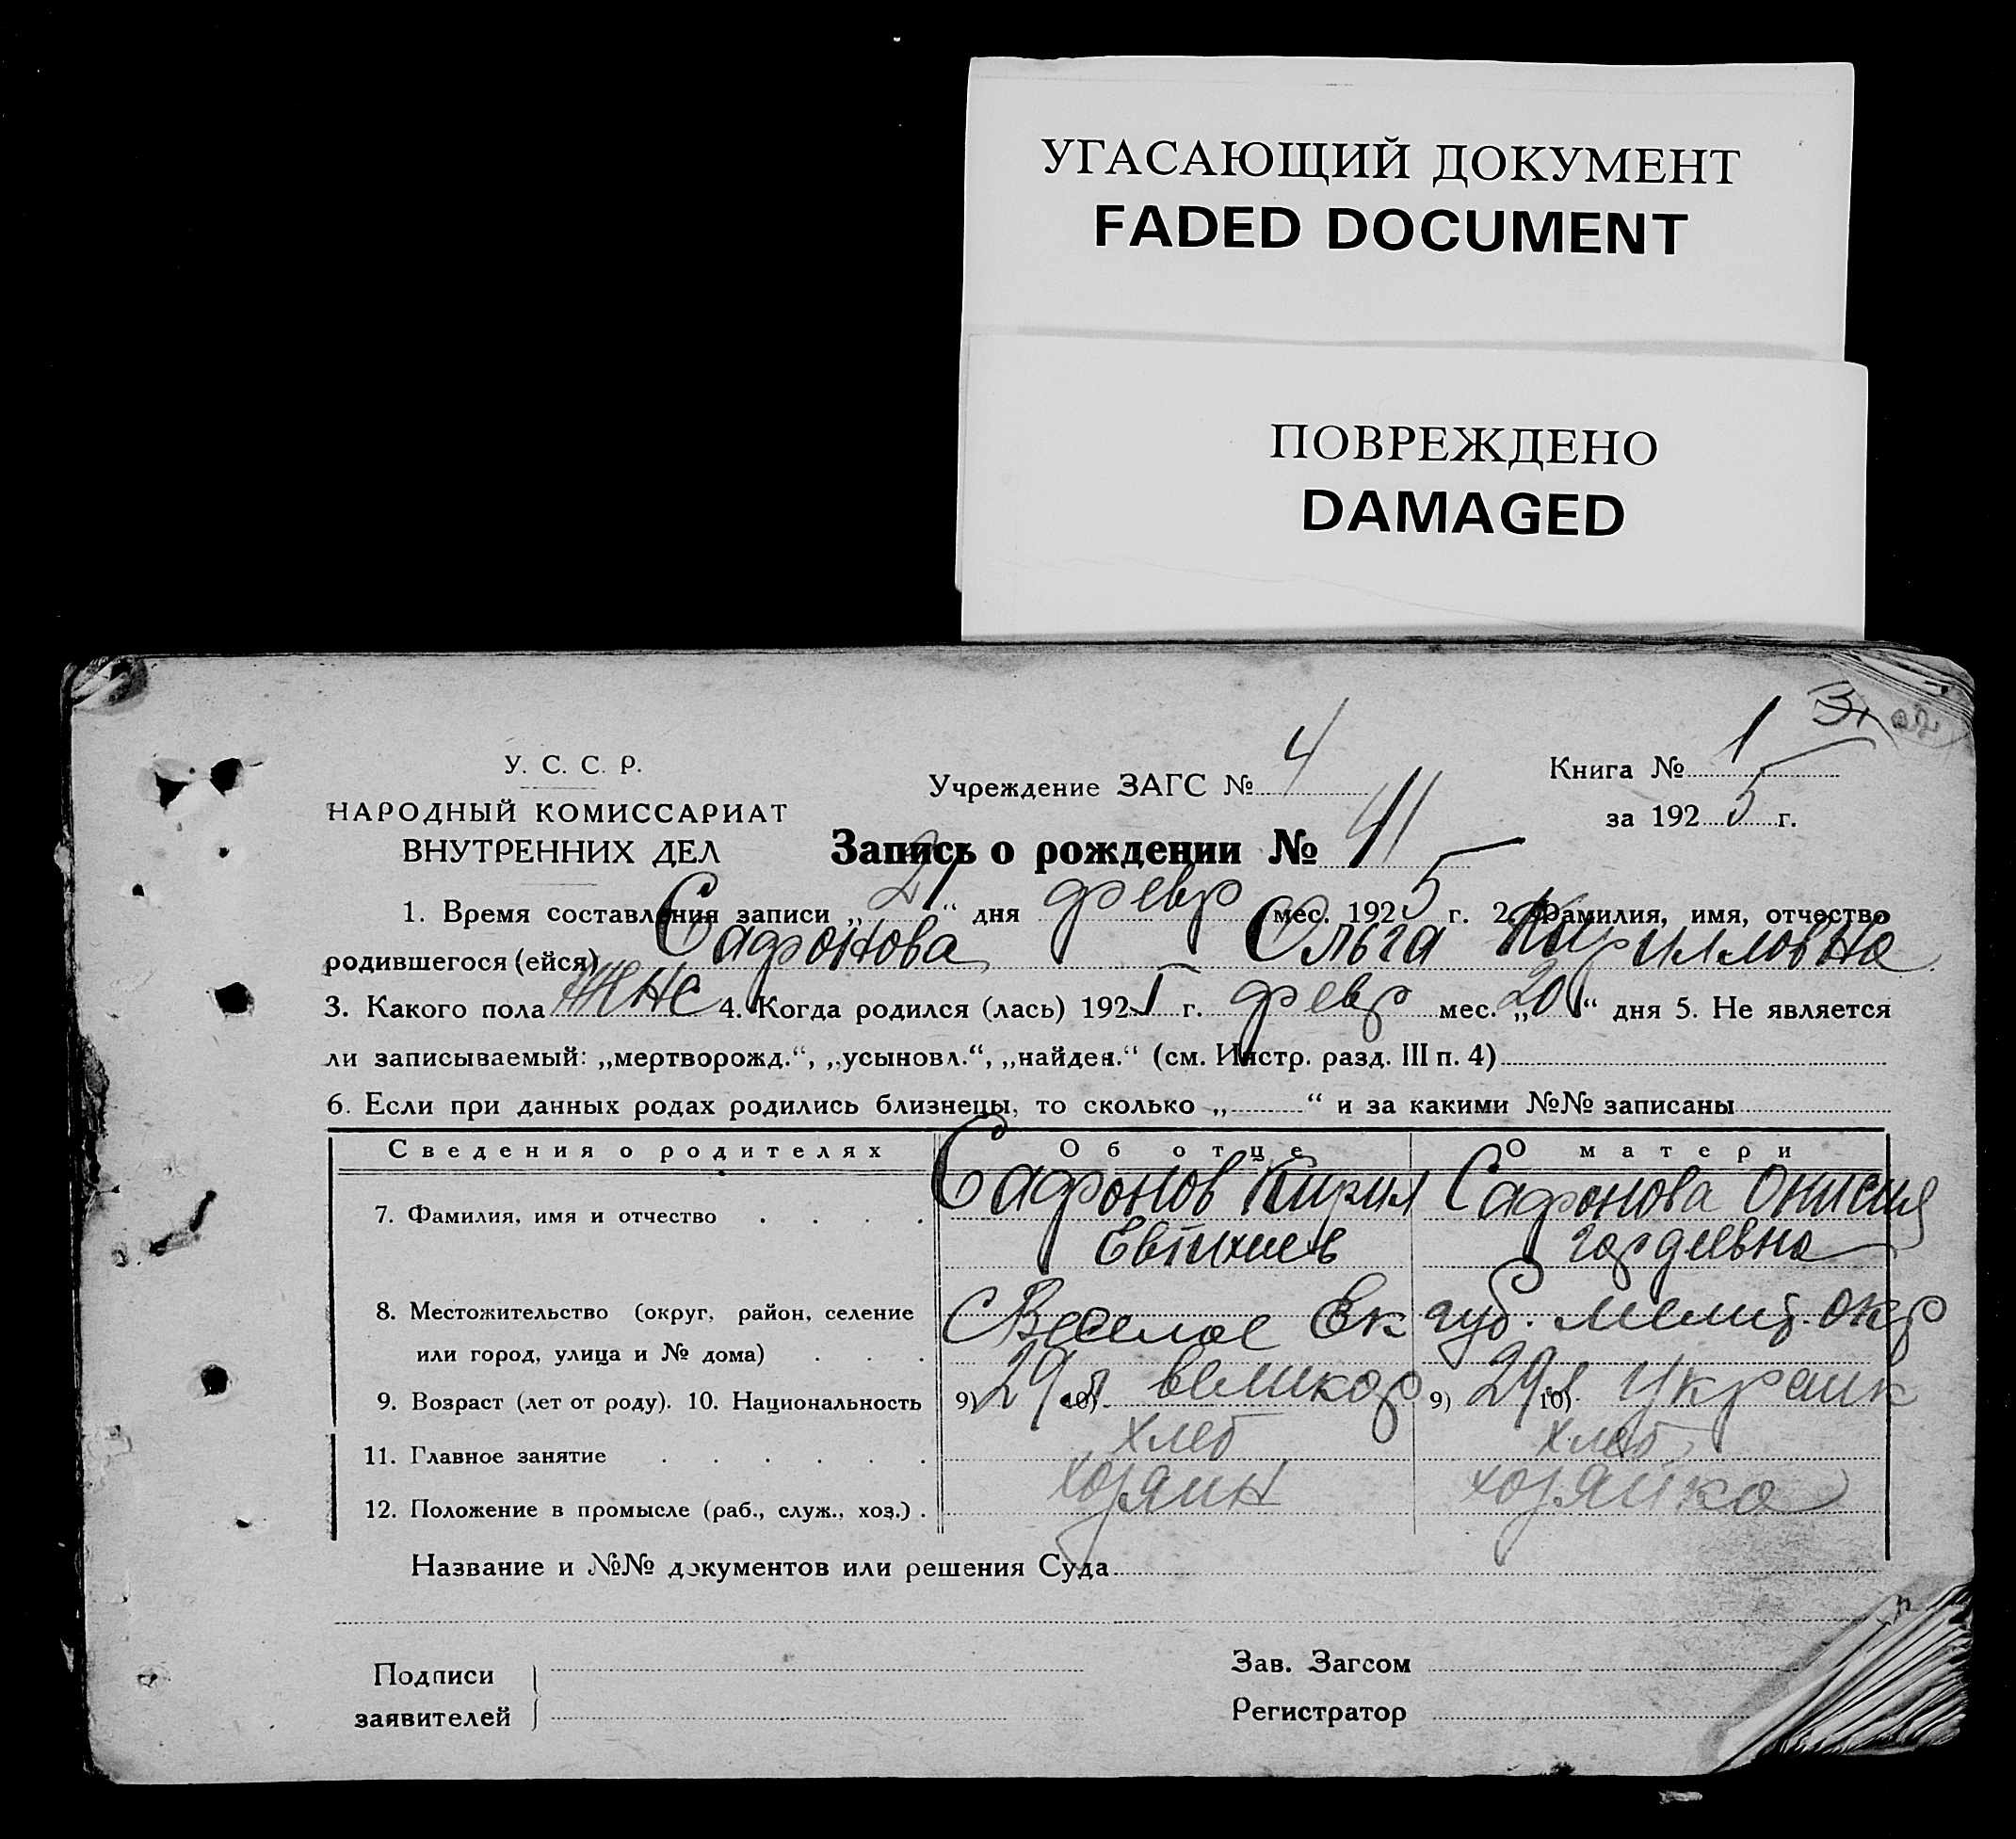 УГАСАЮЩИЙ ДОКУМЕНТ
FADED DOCUMENT
ПОВРЕЖДЕНО
DAMAGED
У. С. С. Р.
НАРОДНЫЙ КОМИССАРИАТ
ВНУТРЕННИХ ДЕЛ
Учреждение ЗАГС № 4
Книга № 1
за 1925 г.
Запись о рождении № 41
1. Время составления записи „21“ дня февр мес. 1925 г. 2. Фамилия, имя, отчество
родившегося (ейся) Сафонова Ольга Кирилловна
3. Какого пола жне 4. Когда родился (лась) 1925 г. февр мес. „20“ дня 5. Не является
ли записываемый: „мертворожд.“, „усыновл.“, „найден.“ (см. Инстр. разд. III п. 4)
6. Если при данных родах родились близнецы, то сколько „ “ и за какими №№ записаны
Сведения о родителях Об отце О матери
7. Фамилия, имя и отчество Сафонов Кирил Сафонова Онисия
Евтихиев Гордеевна
8. Местожительство (округ, район, селение С Веселое Ек губ. Мелит. окр
или город, улица и № дома)
9. Возраст (лет от роду). 10. Национальность 9) 29 л 10) великор 9) 29 л 10) Украин
11. Главное занятие хлеб хлеб
12. Положение в промысле (раб., служ., хоз.) хозяин хозяйка
Название и №№ документов или решения Суда
Подписи
заявителей
Зав. Загсом
Регистратор